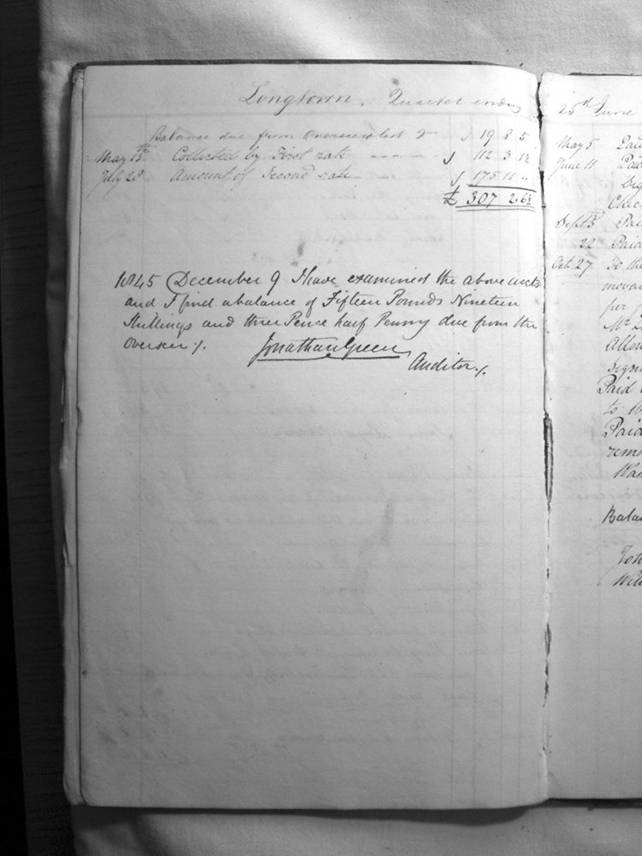 Longtown. Quarter ending
Balance due from Overseer last 19. 8. 5
May 13th Collected by First rate 112. 3. 1½
July 28 Amount of Second rate 175. 11 "
£ 307 2. 6½
1845 December 9 I have examined the above accts
and I find a balance of Fifteen Pounds Nineteen
Shillings and three Pence half Penny due from the
Overseer
Jonathan Green
Auditor
25th June
May 5 Paid
June 11 Paid
Sept
22 Paid
Oct. 27 To the
per
Mr
Paid
to
Paid
Balan